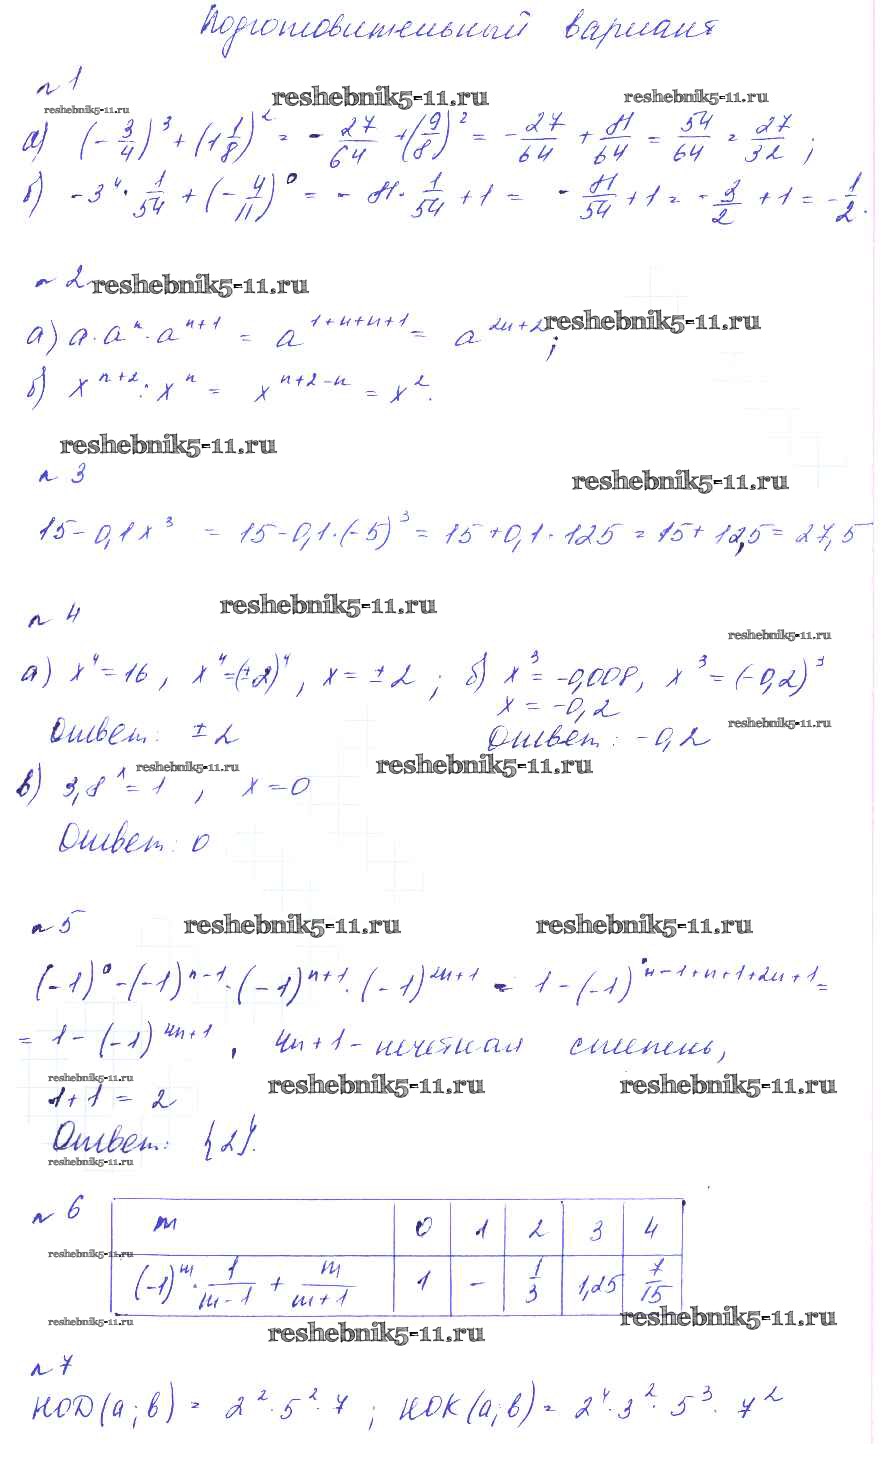 Подготовительный вариант
№ 1
reshebnik5-11.ru
reshebnik5-11.ru
reshebnik5-11.ru
а) (-3/4)^3 + (1 1/8)^2 = -27/64 + (9/8)^2 = -27/64 + 81/64 = 54/64 = 27/32;
б) -3^4 · 1/54 + (-4/11)^0 = -81 · 1/54 + 1 = -81/54 + 1 = -3/2 + 1 = -1/2.
№ 2
reshebnik5-11.ru
а) a · a^n · a^(n+1) = a^(1+n+n+1) = a^(2n+2);
reshebnik5-11.ru
б) x^(n+2) : x^n = x^(n+2-n) = x^2.
reshebnik5-11.ru
№ 3
reshebnik5-11.ru
15 - 0,1x^3 = 15 - 0,1 · (-5)^3 = 15 + 0,1 · 125 = 15 + 12,5 = 27,5
№ 4
reshebnik5-11.ru
reshebnik5-11.ru
а) x^4 = 16, x^4 = (±2)^4, x = ±2; б) x^3 = -0,008, x^3 = (-0,2)^3
x = -0,2
Ответ: ±2
Ответ: -0,2
reshebnik5-11.ru
reshebnik5-11.ru
reshebnik5-11.ru
в) 3,8^x = 1, x = 0
Ответ: 0
№ 5
reshebnik5-11.ru
reshebnik5-11.ru
(-1)^0 - (-1)^(n-1) · (-1)^(n+1) · (-1)^(2n+1) = 1 - (-1)^(n-1+n+1+2n+1) =
= 1 - (-1)^(4n+1), 4n+1 - нечётная степень,
reshebnik5-11.ru
reshebnik5-11.ru
reshebnik5-11.ru
1 + 1 = 2
Ответ: {2}.
reshebnik5-11.ru
№ 6
m 0 1 2 3 4
reshebnik5-11.ru
(-1)^m · 1/(m-1) + m/(m+1) 1 - 1/3 1,25 7/15
reshebnik5-11.ru
reshebnik5-11.ru
reshebnik5-11.ru
№ 7
НОД(a; b) = 2^2 · 5^2 · 7; НОК(a; b) = 2^4 · 3^2 · 5^3 · 7^2